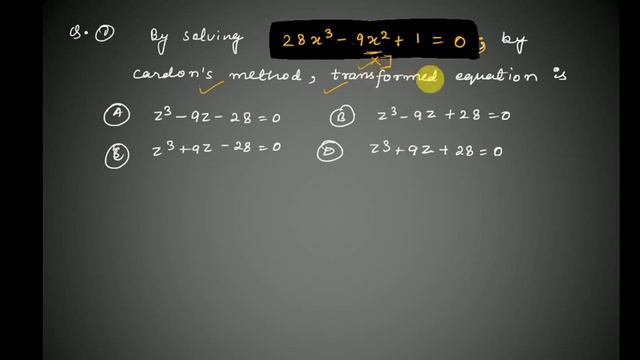 Q. ① By solving 28x³ - 9x² + 1 = 0, by
cardon's method, transformed equation is
Ⓐ z³ - 9z - 28 = 0 Ⓑ z³ - 9z + 28 = 0
Ⓒ z³ + 9z - 28 = 0 Ⓓ z³ + 9z + 28 = 0